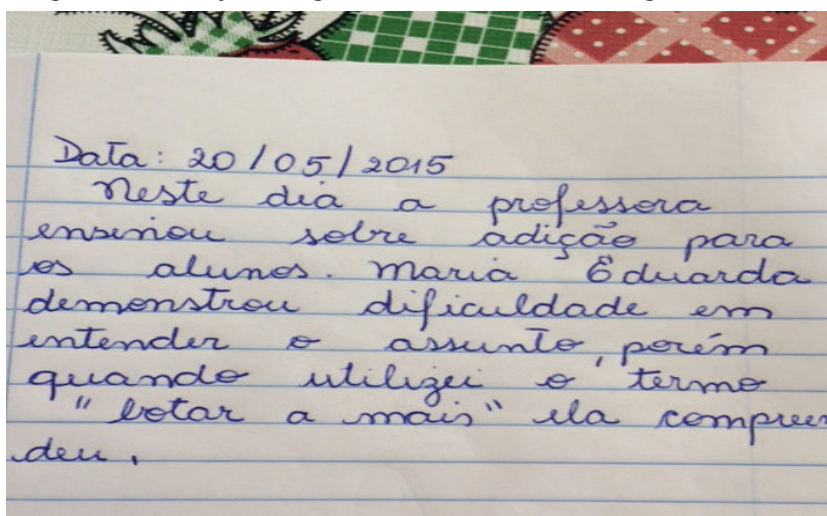 Data: 20/05/2015
Neste dia a professora
ensinou sobre adição para
os alunos. Maria Eduarda
demonstrou dificuldade em
entender o assunto, porém
quando utilizei o termo
"botar a mais" ela compreen
deu.